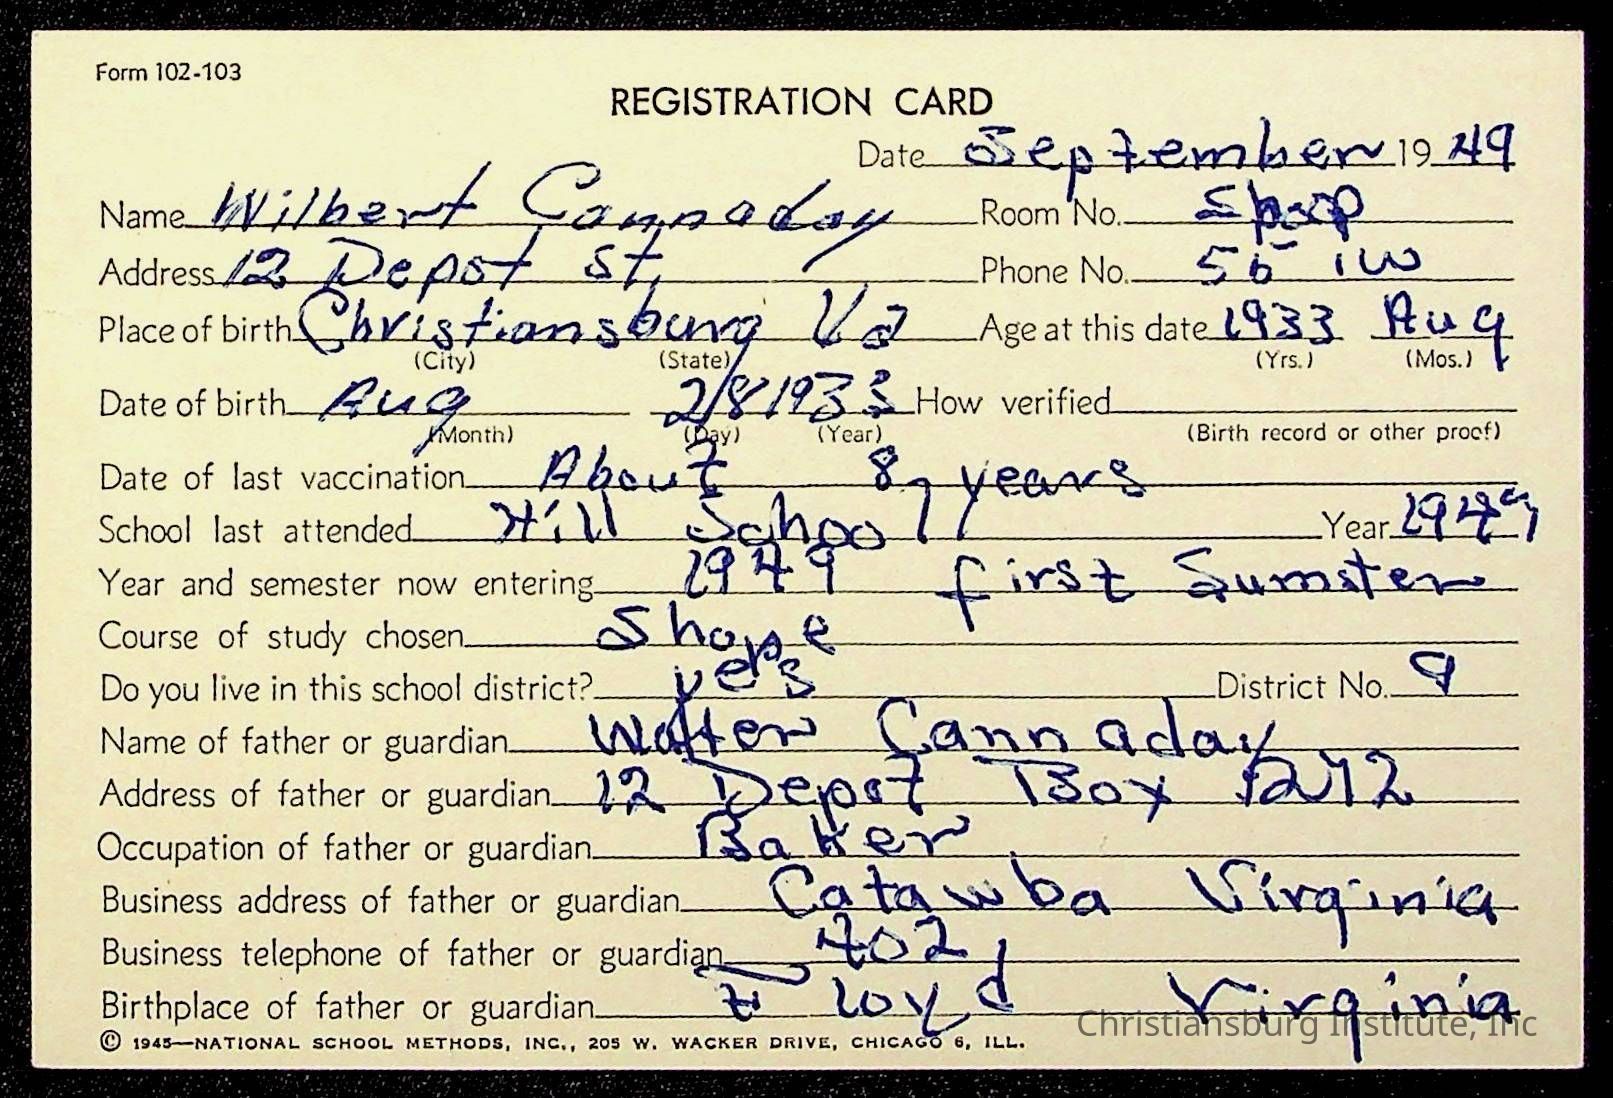 Form 102-103
REGISTRATION CARD
Date September 1949
Name Wilbert Cannaday Room No. Shop
Address 12 Depot St, Phone No. 565 1W
Place of birth Christiansburg Va Age at this date 1933 Aug
(City) (State) (Yrs.) (Mos.)
Date of birth Aug 28 1933 How verified
(Month) (Day) (Year) (Birth record or other proof)
Date of last vaccination About 8 years
School last attended Hill School Year 1949
Year and semester now entering 1949 first Sumster
Course of study chosen Shope
Do you live in this school district? yes District No. 9
Name of father or guardian Walter Cannaday
Address of father or guardian 12 Depot Box
Occupation of father or guardian Baker
Business address of father or guardian Catawba Virginia
Business telephone of father or guardian 402
Birthplace of father or guardian Floyd Virginia
© 1945—NATIONAL SCHOOL METHODS, INC., 205 W. WACKER DRIVE, CHICAGO 6, ILL.
Christiansburg Institute, Inc